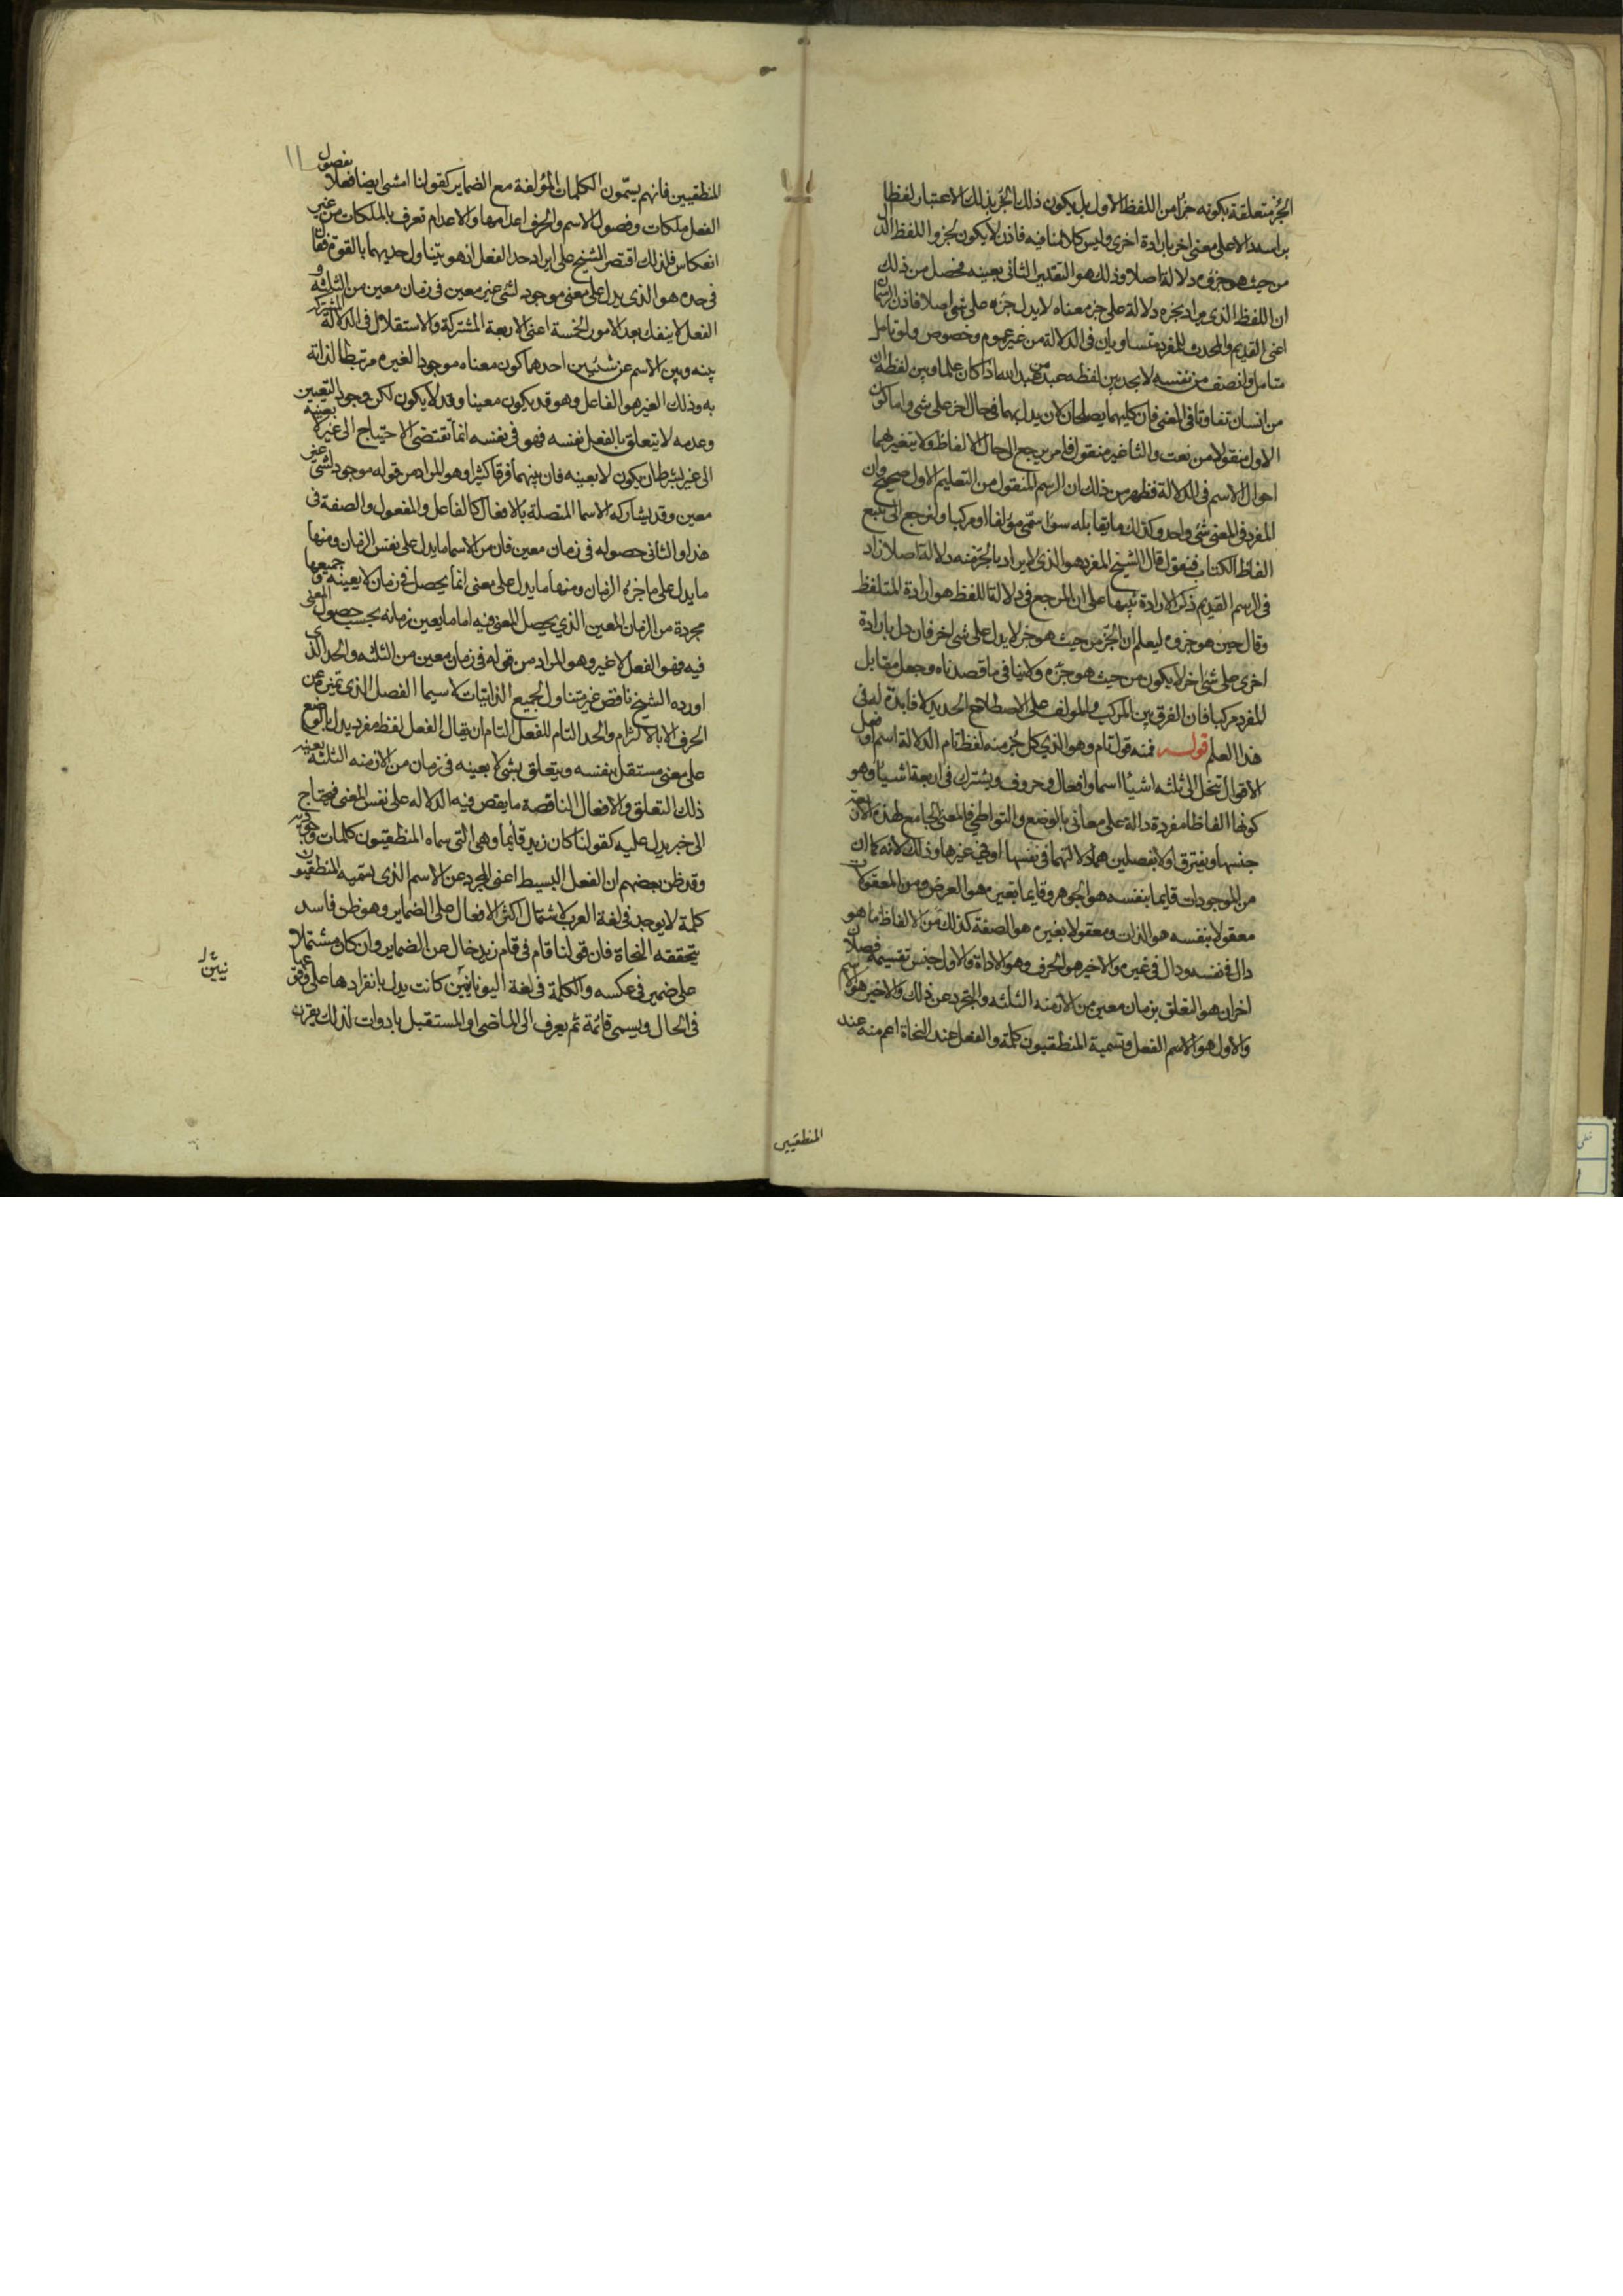 الجزء متعلقة بكونه جزءا من اللفظ الاول بل يكون ذلك الجزء بذلك الاعتبار لفظا
براسه دالا على معنى اخر بارادة اخرى وليس كلامنا فيه فاذن لا يكون لجزو اللفظ الدال
من حيث هو جزؤه دلالة اصلا وذلك هو التقدير الثانى بعينه فحصل من ذلك
ان اللفظ الذى يراد بجزه دلالة على جز معناه لا يدل جزه على شى اصلا فاذن الرسمان
اعنى القديم والمحدث للمفرد متساويان فى الدلالة من غير عموم وخصوص ولو تامل
متامل وانصف من نفسه لا يجد بين لفظه عبد من عبد الله اذا كان علما وبين لفظة ان
من انسان تفاوتا فى المعنى فان كليهما يصلحان لان يدل بهما فى حال اخر على شى واما كون
الاول منقولا من نعت والثانى غير منقول فامر يرجع الى حال الالفاظ ولا يتغير بهما
احوال الاسم فى الدلالة فظهر من ذلك ان الرسم المنقول من التعليم الاول صحيح وان
المفرد فى المعنى شى واحد وكذلك ما يقابله سواء سمّى مؤلفا او مركبا ولنرجع الى تتبع
الفاظ الكتاب فنقول قال الشيخ المفرد هو الذى لا يراد بالجزء منه دلالة اصلا زاد
فى الرسم القديم ذكر الارادة تنبيها على ان المرجع فى دلالة اللفظ هو ارادة المتلفظ
وقال حين هو جزوه ليعلم ان الجزء من حيث هو جز لا يدل على شى اخر فان دل بارادة
اخرى على شى اخر لا يكون من حيث هو جزه ولا ينافى ما قصدناه وجعل مقابل
المفرد مركبا فان الفرق بين المركب والمولف على الاصطلاح الجديد لا فايدة له فى
هذا العلم قوله فمنه قول تام وهو الذي كل جزء منه لفظ تام الدلالة اسم او فعل
الاقوال تنحل الى ثلثه اشياء اسما وافعال وحروف ويشترك فى اربعة اشياء وهو
كونها الفاظا مفردة دالة على معانى بالوضع والتواطي فالمعنى الجامع لهذه الاربعة
جنسها ويفترق اولا بفصلين هما دلالتهما فى نفسها او فى غيرها وذلك لانه كما ان
من الموجودات قايما بنفسه هو الجوهر وقايما بغيره هو العرض ومن المعقولات
معقولا بنفسه هو الذات ومعقولا بغيره هو الصفة كذلك من الالفاظ ما هو
دال فى نفسه ودال فى غيره والاخير هو الحرف وهو الاداة والاول جنس تقسيمه فصلان
اخران هو التعلق بزمان معين من الازمنه الثلثه والتجرد عن ذلك والاخير هو الاسم
والاول هو الاسم الفعل وتسمية المنطقيون كلمة والفعل عند النحاة اعم منه عند
المنطقيين
١١
المنطقيين فانهم يسمّون الكلمات المؤلفة مع الضماير كقولنا امشى ايضا فعلا وفصول
الفعل ملكات وفصول الاسم والحرف اعدامها والاعدام تعرف بالملكات من غير
انعكاس فلذلك اقتصر الشيخ على ايراد حد الفعل اذ هو يتناول حديهما بالقوة فقال
فى حده هو الذى يدل على معنى موجود لشى غير معين فى زمان معين من الثلثه و
الفعل لا ينفك بعد الامور الخمسة اعنى الاربعة المشتركة والاستقلال فى الدلالة المشترك
بينه وبين الاسم عن شيئين احدهما كون معناه موجودا لغيره مرتبطا لذاته
به وذلك الغير هو الفاعل وهو قد يكون معينا وقد لا يكون لكن وجود التعيين
وعدمه لا يتعلق بالفعل نفسه فهو فى نفسه انما تقتضى الاحتياج الى غير لا بعينه
الى غير بشرط ان يكون لا بعينه فان بينهما فرقا كثيرا وهو المراد من قوله موجود لشى غير
معين وقد يشاركه الاسما المتصلة بالافعال كالفاعل والمفعول والصفة فى
هذا والثانى حصوله فى زمان معين فان من الاسما ما يدل على نفس الزمان ومنها
ما يدل على ما جزه الزمان ومنها ما يدل على معنى انما يحصل فى زمان لا بعينه و جميعها
مجردة من الزمان المعين الذي يحصل المعنى فيه اما ما يعين زمانه بحسب حصول المعنى
فيه فهو الفعل لا غير وهو المراد من قوله فى زمان معين من الثلثه والحد الذى
اورده الشيخ ناقص غير متناول لجميع الذاتيات لا سيما الفصل الذى تميزه عن
الحرف الا بالالتزام والحد التام للفعل التام ان يقال الفعل لفظ مفرد يدل بالوضع
على معنى مستقل بنفسه ويتعلق بشى لا بعينه فى زمان من الازمنه الثلثه بعينه
ذلك التعلق والافعال الناقصة ما ينقص فيه الدلاله على نفس المعنى فيحتاج
الى خبر يدل عليه كقولنا كان زيد قائما وهى التى سماه المنطقيون كلمات وجودية
وقد ظن بعضهم ان الفعل البسيط اعنى المجرد عن الاسم الذى يسميه المنطقيون
كلمة لا يوجد فى لغة العرب لاشتمال اكثر الافعال على الضماير وهو ظن فاسد
يتحققه النحاة فان قولنا قام فى قام زيد خال عن الضماير وان كان مشتملا
على ضمير فى عكسه والكلمة فى لغة اليونانيين كانت يدل بانفرادها على وقوعها
فى الحال ويسمى قائمة ثم يعرف الى الماضى او المستقبل بادوات لذلك يقترن